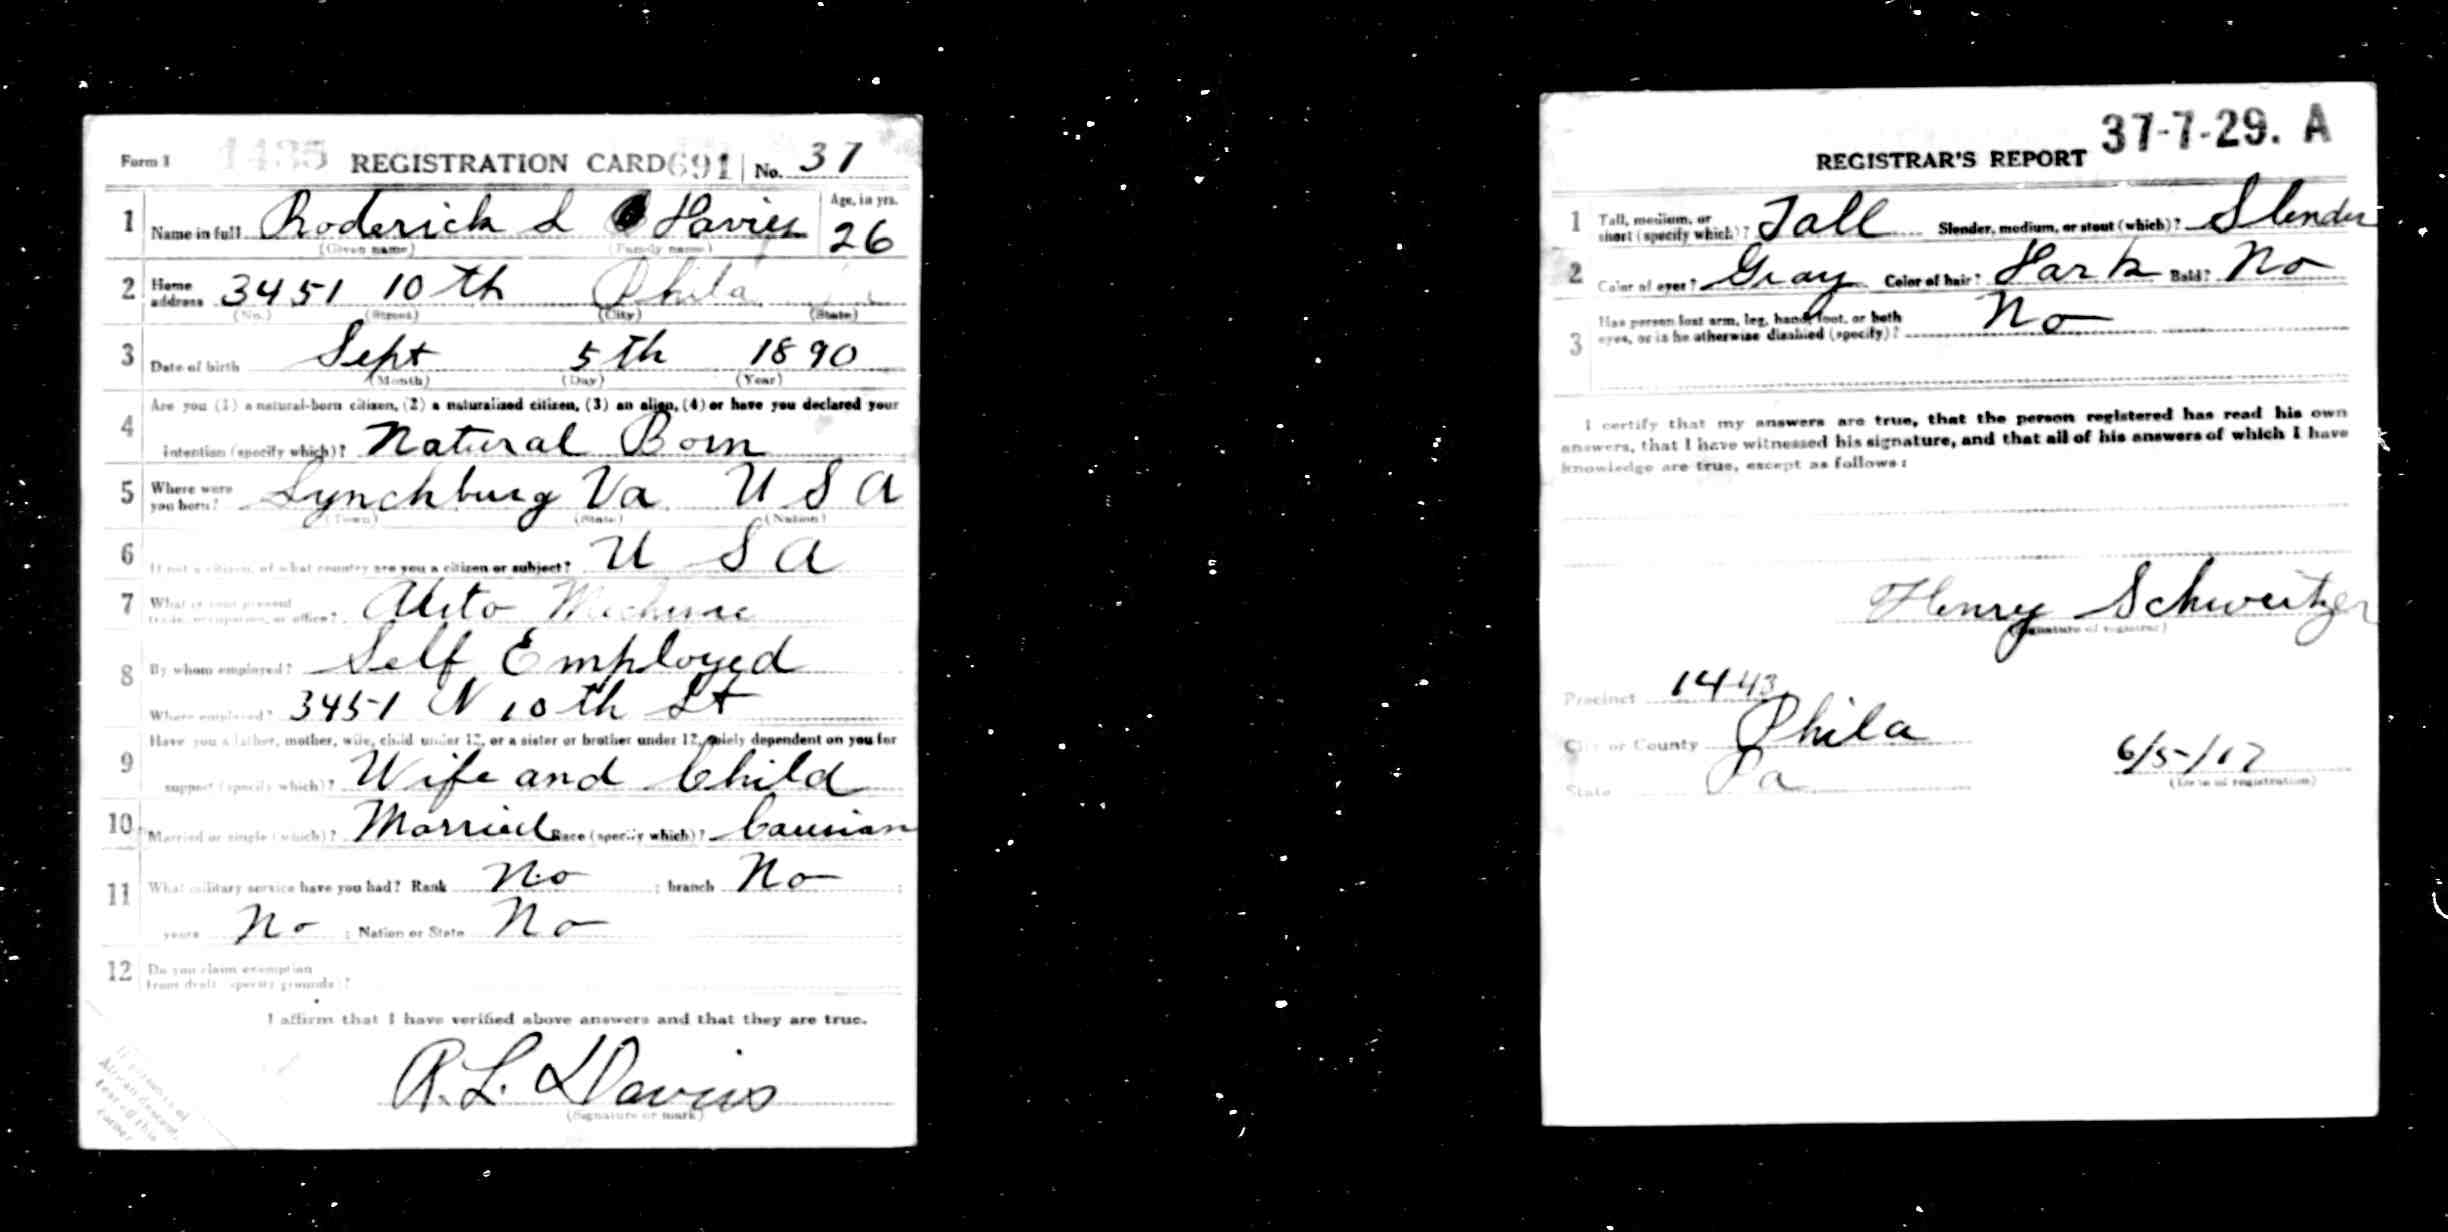 Form 1 1435 REGISTRATION CARD 691 No. 37
1 Name in full Roderick L Davies Age, in yrs. 26
(Given name) (Family name)
2 Home address 3451 10th Phila
(No.) (Street) (City) (State)
3 Date of birth Sept 5th 1890
(Month) (Day) (Year)
4 Are you (1) a natural-born citizen, (2) a naturalized citizen, (3) an alien, (4) or have you declared your
intention (specify which)? Natural Born
5 Where were you born? Lynchburg Va. U S A
(Town) (State) (Nation)
6 If not a citizen, of what country are you a citizen or subject? U S A
7 What is your present trade, occupation, or office? Auto
8 By whom employed? Self Employed
Where employed? 3451 N 10th St
9 Have you a father, mother, wife, child under 12, or a sister or brother under 12, solely dependent on you for
support (specify which)? Wife and Child
10 Married or single (which)? Married Race (specify which)? Causian
11 What military service have you had? Rank No ; branch No ;
years No ; Nation or State No
12 Do you claim exemption
from draft (specify grounds)?
I affirm that I have verified above answers and that they are true.
R. L. Davies
(Signature or mark)
If person is of
African descent,
tear off this
corner
37-7-29. A
REGISTRAR'S REPORT
1 Tall, medium, or short (specify which)? Tall Slender, medium, or stout (which)? Slender
2 Color of eyes? Gray Color of hair? Dark Bald? No
3 Has person lost arm, leg, hand, foot, or both
eyes, or is he otherwise disabled (specify)? No
I certify that my answers are true, that the person registered has read his own
answers, that I have witnessed his signature, and that all of his answers of which I have
knowledge are true, except as follows:
Henry Schweitzer
(Signature of registrar)
Precinct 14-43
City or County Phila
State Pa
6/5/17
(Date of registration)